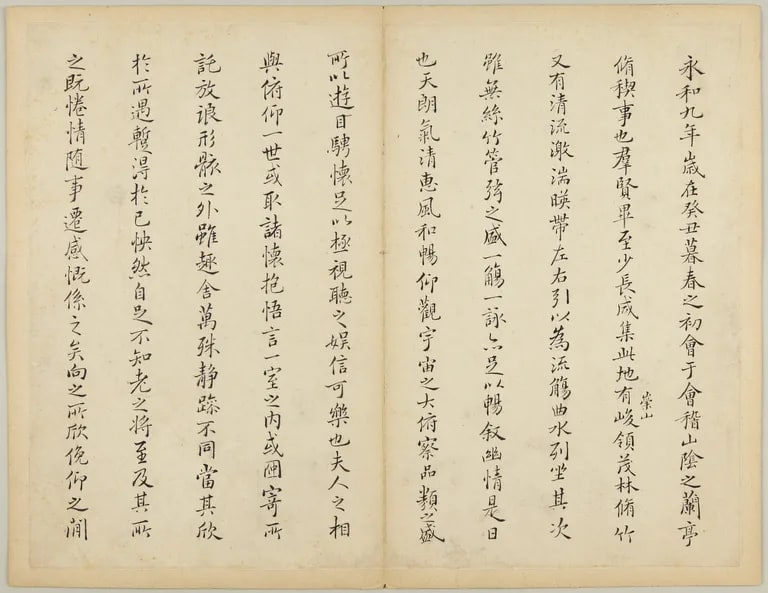 永和九年歲在癸丑暮春之初會于會稽山陰之蘭亭
脩稧事也羣賢畢至少長咸集此地有峻領茂林脩竹
崇山
又有清流激湍暎帶左右引以為流觴曲水列坐其次
雖無絲竹管弦之盛一觴一詠亦足以暢叙幽情是日
也天朗氣清惠風和暢仰觀宇宙之大俯察品類之盛
所以遊目騁懷足以極視聽之娛信可樂也夫人之相
與俯仰一世或取諸懷抱悟言一室之內或因寄所
託放浪形骸之外雖趣舍萬殊静躁不同當其欣
於所遇暫得於己怏然自足不知老之将至及其所
之既惓情随事遷感慨係之矣向之所欣俛仰之閒